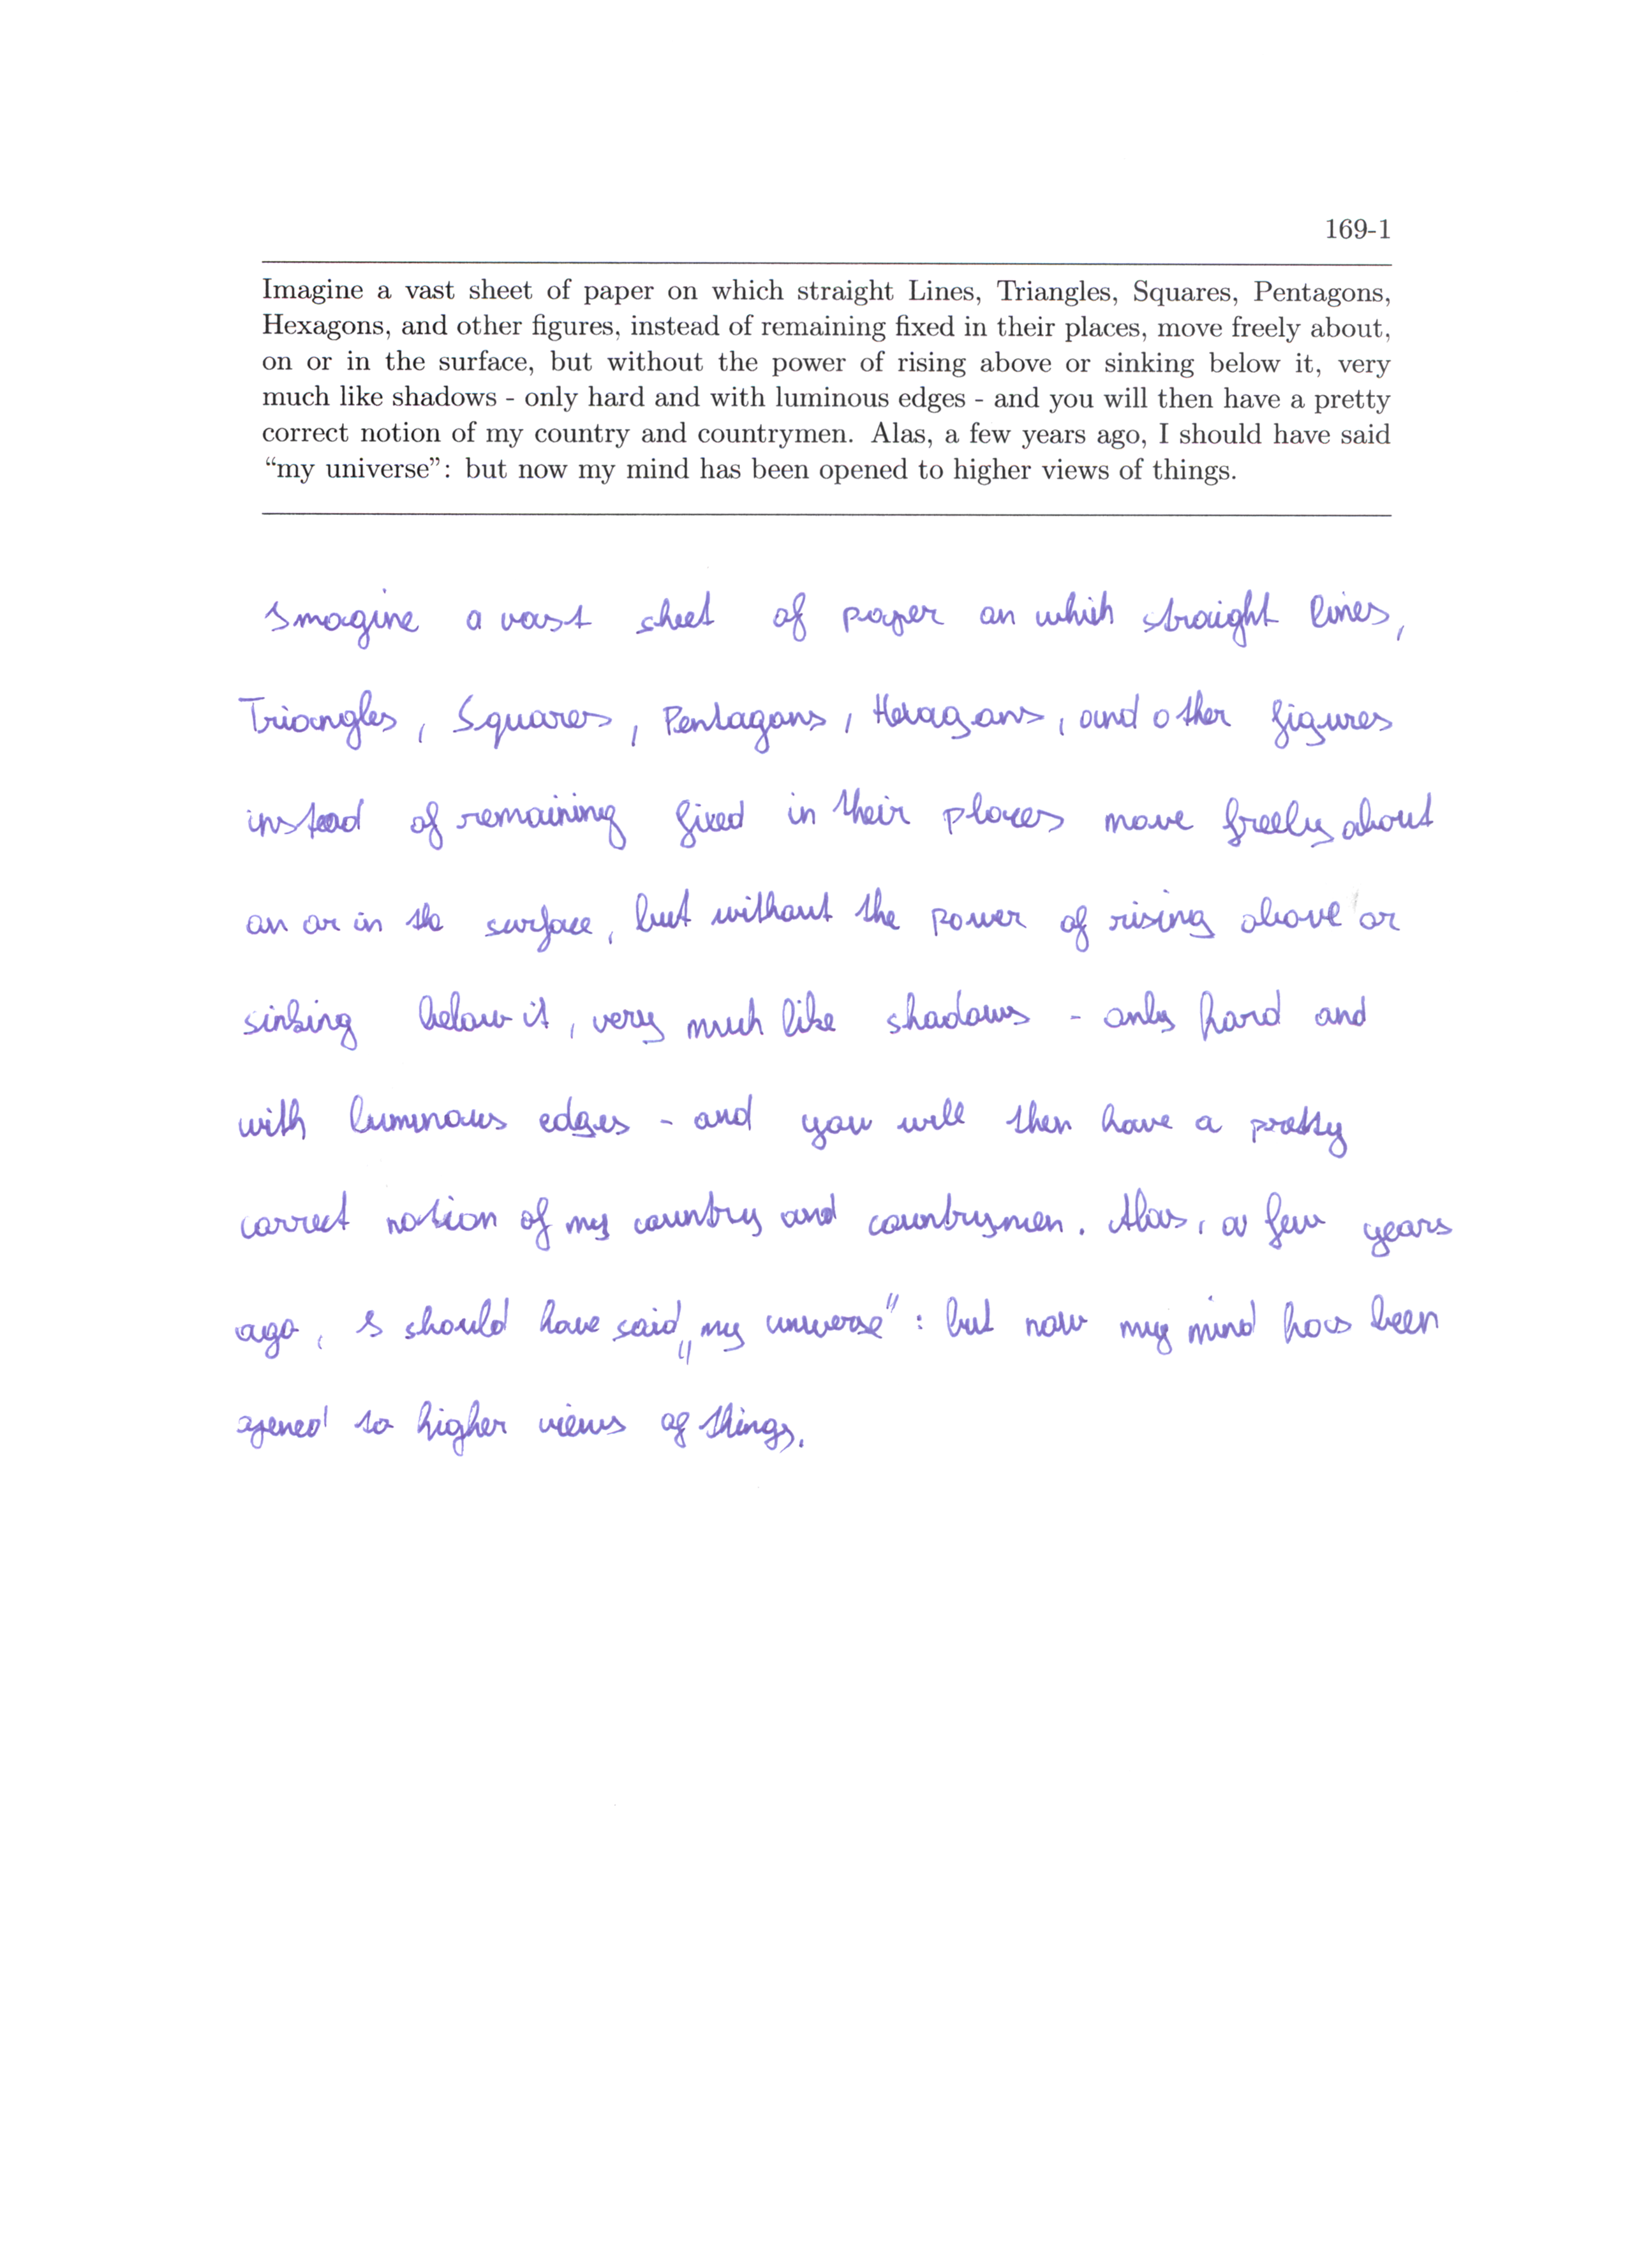 169-1
Imagine a vast sheet of paper on which straight Lines, Triangles, Squares, Pentagons,
Hexagons, and other figures, instead of remaining fixed in their places, move freely about,
on or in the surface, but without the power of rising above or sinking below it, very
much like shadows - only hard and with luminous edges - and you will then have a pretty
correct notion of my country and countrymen. Alas, a few years ago, I should have said
“my universe”: but now my mind has been opened to higher views of things.
Imagine a vast sheet of paper on which straight lines,
Triangles, Squares, Pentagons, Hexagons, and other figures
instead of remaining fixed in their places move freely about
on or in the surface, but without the power of rising above or
sinking below it, very much like shadows - only hard and
with luminous edges - and you will then have a pretty
correct notion of my country and countrymen. Alas, a few years
ago, I should have said „my universe”: but now my mind has been
opened to higher views of things.